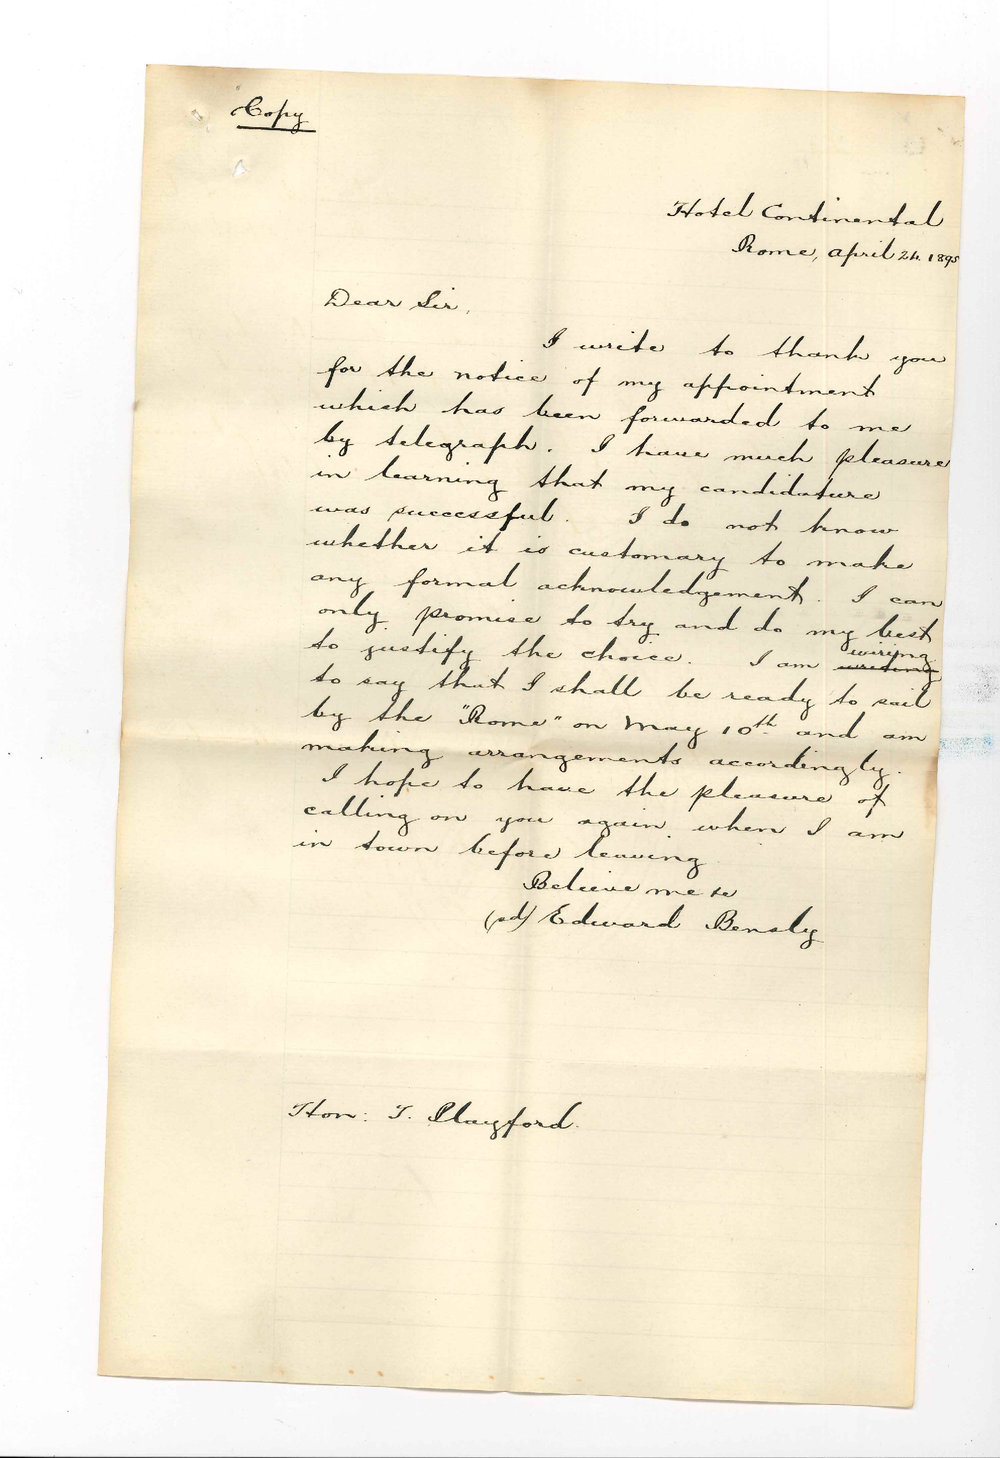 Copy
Hotel Continental
Rome, April 24. 1895
Dear Sir,
I write to thank you
for the notice of my appointment
which has been forwarded to me
by telegraph. I have much pleasure
in learning that my candidature
was successful. I do not know
whether it is customary to make
any formal acknowledgement. I can
only promise to try and do my best
to justify the choice. I am writing wiring
to say that I shall be ready to sail
by the "Rome" on May 10th and am
making arrangements accordingly.
I hope to have the pleasure of
calling on you again when I am
in town before leaving
Believe me &c
(sd) Edward Bensly
Hon: T. Playford.